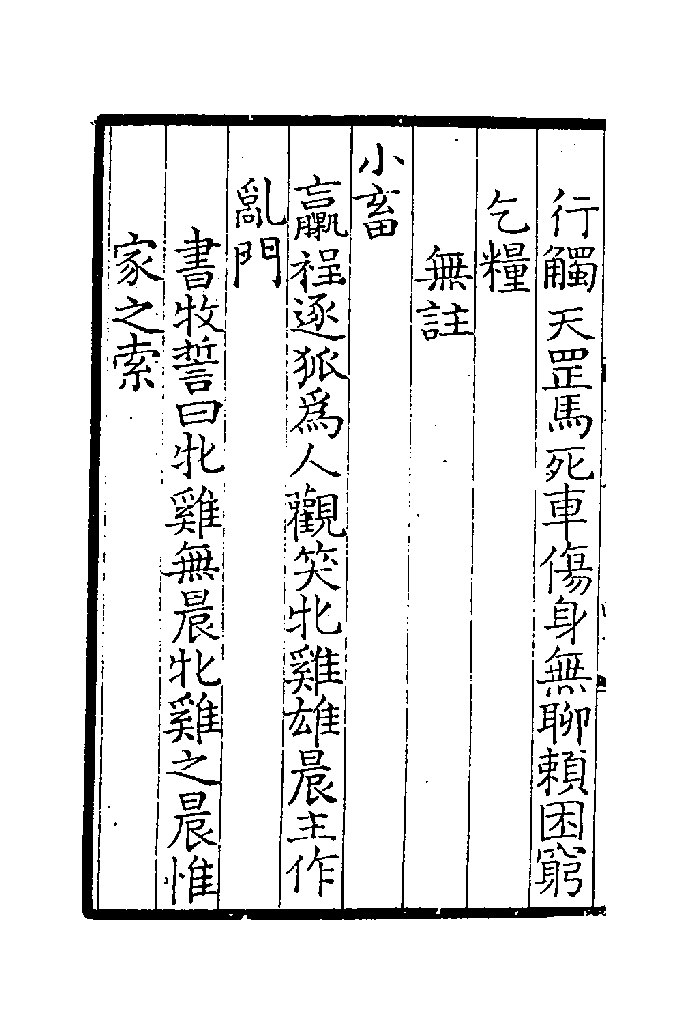 行觸天罡馬死車傷身無聊賴困窮
乞糧
無註
小畜
羸裎逐狐為人觀笑牝雞雄晨主作
亂門
書牧誓曰牝雞無晨牝雞之晨惟
家之索